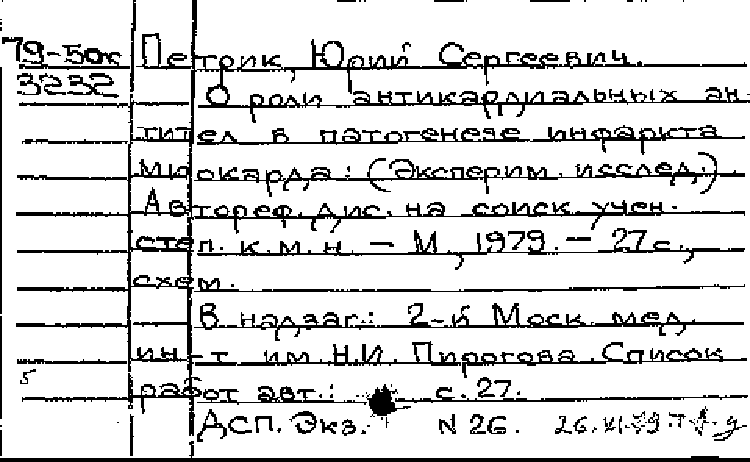 79-50к Петрик, Юрий Сергеевич.
3232 О роли антикардиальных ан-
тител в патогенезе инфаркта
миокарда: (Эксперим. исслед.).
Автореф. дис. на соиск. учен.
степ. к.м.н. - М., 1979. - 27 с.,
схем.
В надзаг.: 2-й Моск. мед.
ин-т им. Н.И. Пирогова. Список
5 работ авт.: с. 27.
ДСП. Экз. N 26.